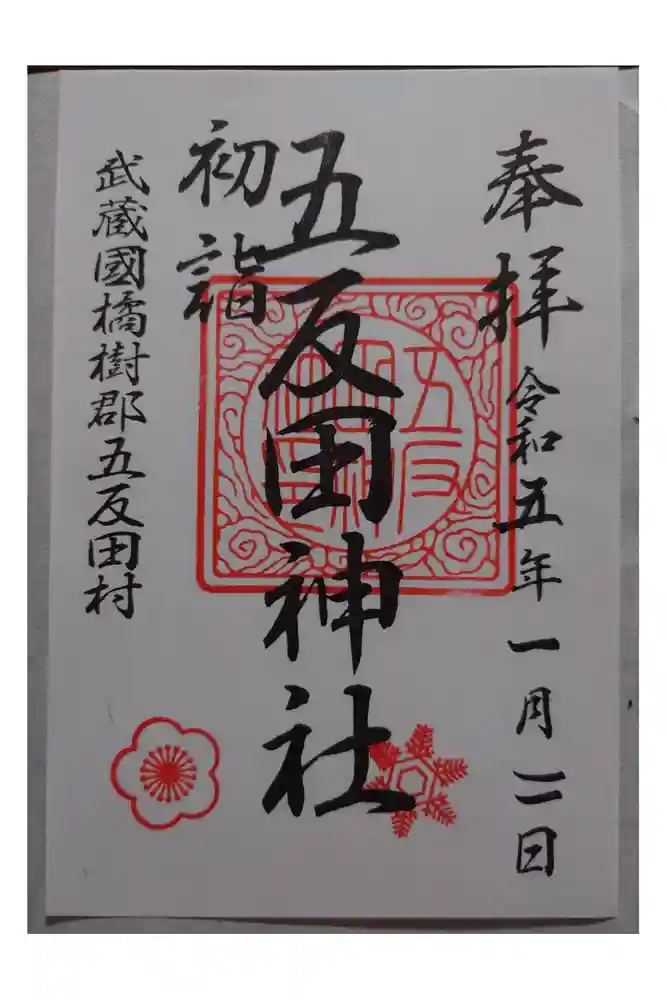 奉拝 令和五年一月二日
五反田神社
初詣
武蔵國橘樹郡五反田村